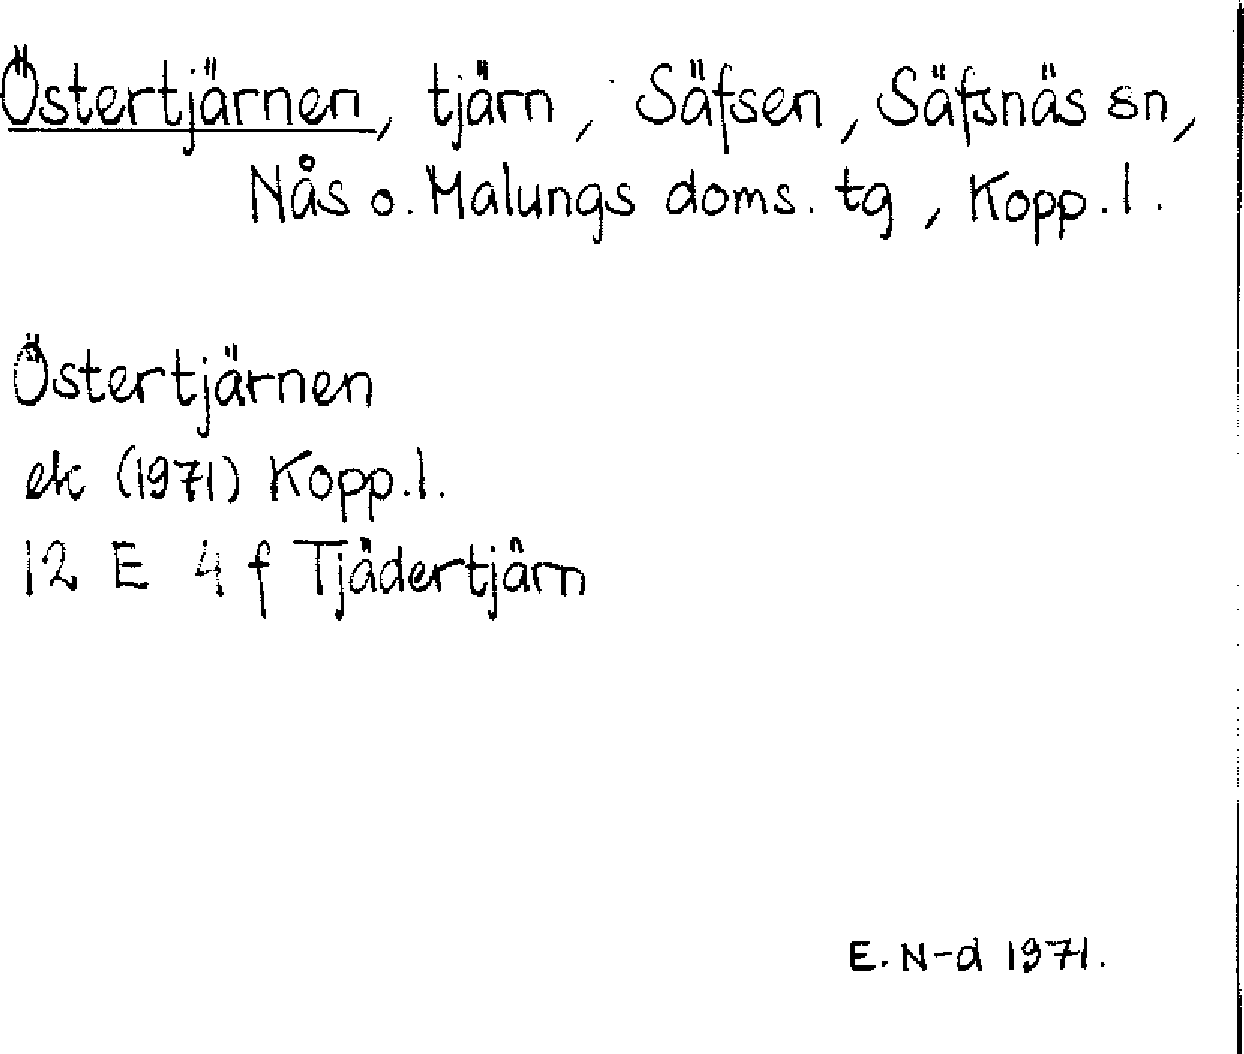 Östertjärnen, tjärn, Säfsen, Säfsnäs sn,
Nås o. Malungs doms. tg, Kopp. l.
Östertjärnen
ek (1971) Kopp.l.
12 E 4 f Tjädertjärn
E. N-d 1971.